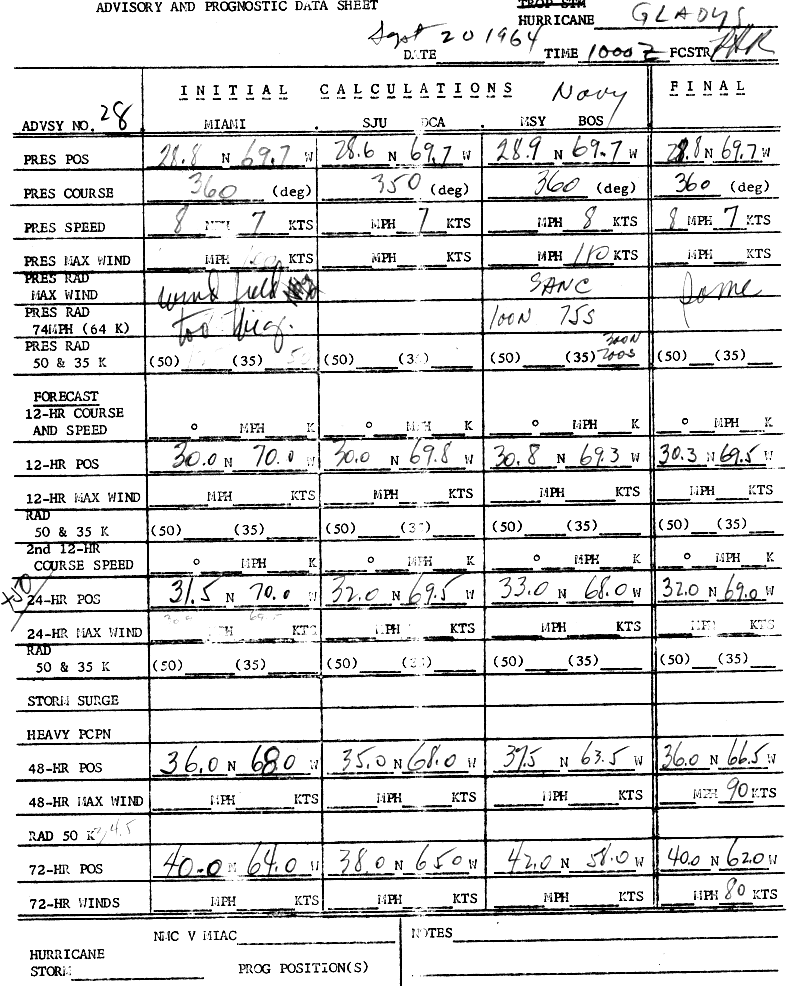 ADVISORY AND PROGNOSTIC DATA SHEET
TROP STM
HURRICANE GLADYS
Sept 20 1964
DATE TIME 1000Z FCSTR
INITIAL CALCULATIONS Navy FINAL
ADVSY NO. 28 MIAMI SJU DCA MSY BOS
PRES POS 28.8 N 69.7 W 28.6 N 69.7 W 28.9 N 69.7 W 28.8 N 69.7 W
PRES COURSE 360 (deg) 350 (deg) 360 (deg) 360 (deg)
PRES SPEED 8 MPH 7 KTS MPH 7 KTS MPH 8 KTS 8 MPH 7 KTS
PRES MAX WIND MPH KTS MPH KTS MPH 110 KTS MPH KTS
PRES RAD
MAX WIND wind field SANC Same
PRES RAD
74MPH (64 K) too big. 100N 75S
PRES RAD 300N
50 & 35 K (50) (35) (50) (35) (50) (35) 200S (50) (35)
FORECAST
12-HR COURSE
AND SPEED ° MPH K ° MPH K ° MPH K ° MPH K
12-HR POS 30.0 N 70.0 W 30.0 N 69.8 W 30.8 N 69.3 W 30.3 N 69.5 W
12-HR MAX WIND MPH KTS MPH KTS MPH KTS MPH KTS
RAD
50 & 35 K (50) (35) (50) (35) (50) (35) (50) (35)
2nd 12-HR
COURSE SPEED ° MPH K ° MPH K ° MPH K ° MPH K
24-HR POS 31.5 N 70.0 W 32.0 N 69.5 W 33.0 N 68.0 W 32.0 N 69.0 W
24-HR MAX WIND MPH KTS MPH KTS MPH KTS MPH KTS
RAD
50 & 35 K (50) (35) (50) (35) (50) (35) (50) (35)
STORM SURGE
HEAVY PCPN
48-HR POS 36.0 N 68.0 W 35.0 N 68.0 W 37.5 N 63.5 W 36.0 N 66.5 W
48-HR MAX WIND MPH KTS MPH KTS MPH KTS MPH 90 KTS
RAD 50 K
72-HR POS 40.0 N 64.0 W 38.0 N 65.0 W 42.0 N 58.0 W 40.0 N 62.0 W
72-HR WINDS MPH KTS MPH KTS MPH KTS MPH 80 KTS
NMC V MIAC NOTES
HURRICANE
STORM PROG POSITION(S)